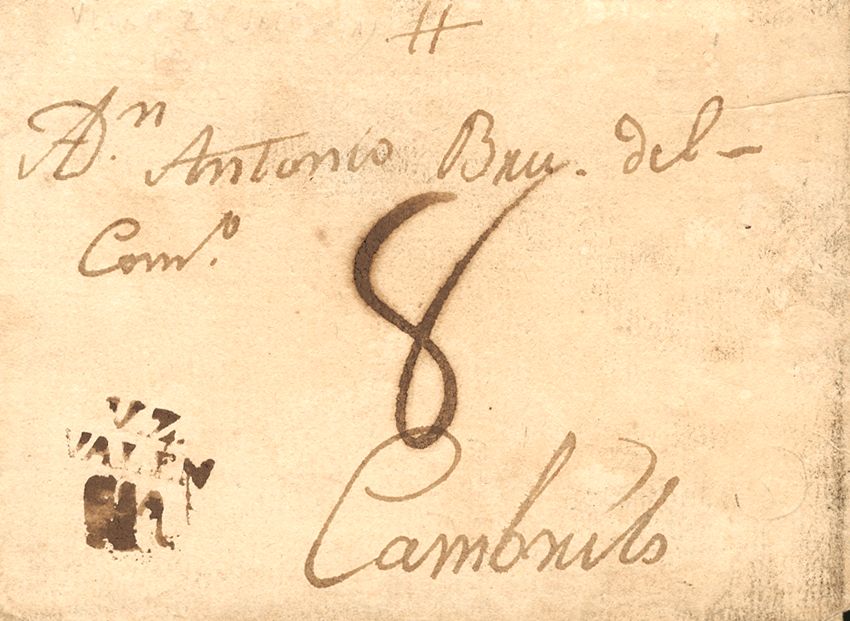 A D.n Antonio Bru. del-
Com.o
8
VZ
VALEN
Cambrils